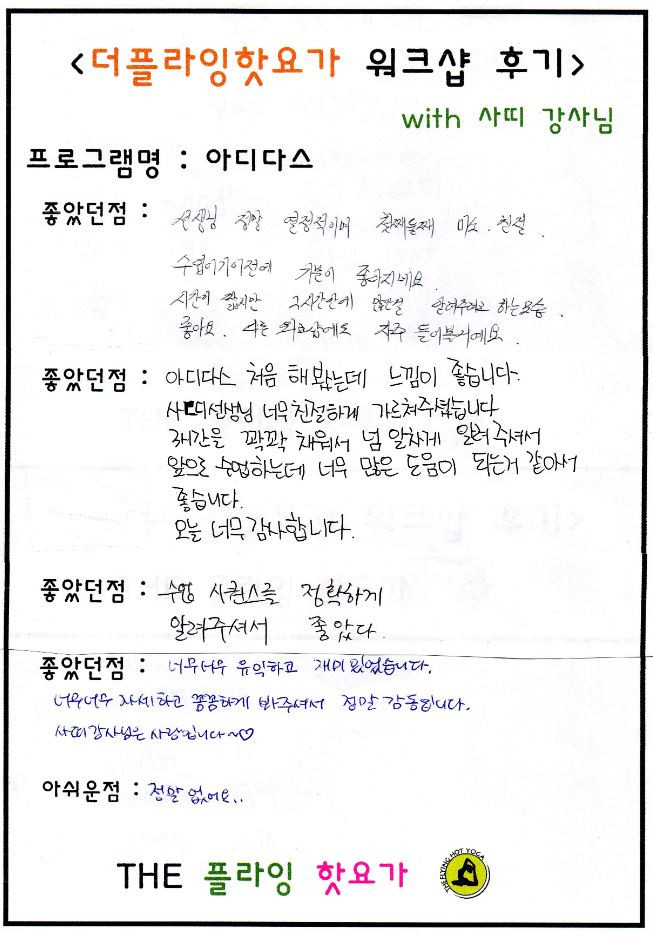 <더플라잉핫요가 워크샵 후기>
with 사띠 강사님
프로그램명 : 아디다스
좋았던점 : 선생님 정말 열정적이며 첫째둘째 미소. 친절.
수업이기이전에 기분이 좋아지네요.
시간이 짧지만 2시간안에 많은걸 알려주려고 하는모습.
좋아요. 다른 워크샵에도 자주 들어볼거예요.
좋았던점 : 아디다스 처음 해봤는데 느낌이 좋습니다.
사띠선생님 너무친절하게 가르쳐주셨습니다
2시간을 꽉꽉 채워서 넘 알차게 알려주셔서
앞으로 수업하는데 너무 많은 도움이 되는거 같아서
좋습니다.
오늘 너무감사합니다.
좋았던점 : 수업 시퀀스를 정확하게
알려주셔서 좋았다.
좋았던점 : 너무너무 유익하고 재미있었습니다.
너무너무 자세하고 꼼꼼하게 봐주셔서 정말 감동입니다.
사띠강사님은 사랑입니다~♡
아쉬운점 : 정말 없어요..
THE 플라잉 핫요가
THE FLYING HOT YOGA